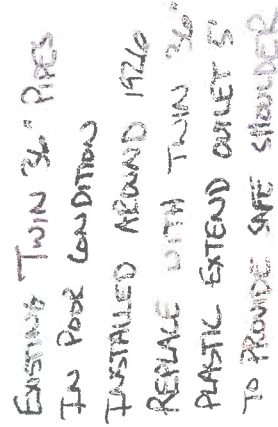 EXISTING TWIN 36" PIPES
IN POOR CONDITION
INSTALLED AROUND 1926
REPLACE WITH TWIN 36"
PLASTIC EXTEND OUTLET 5'
TO PROVIDE SAFE SHOULDER